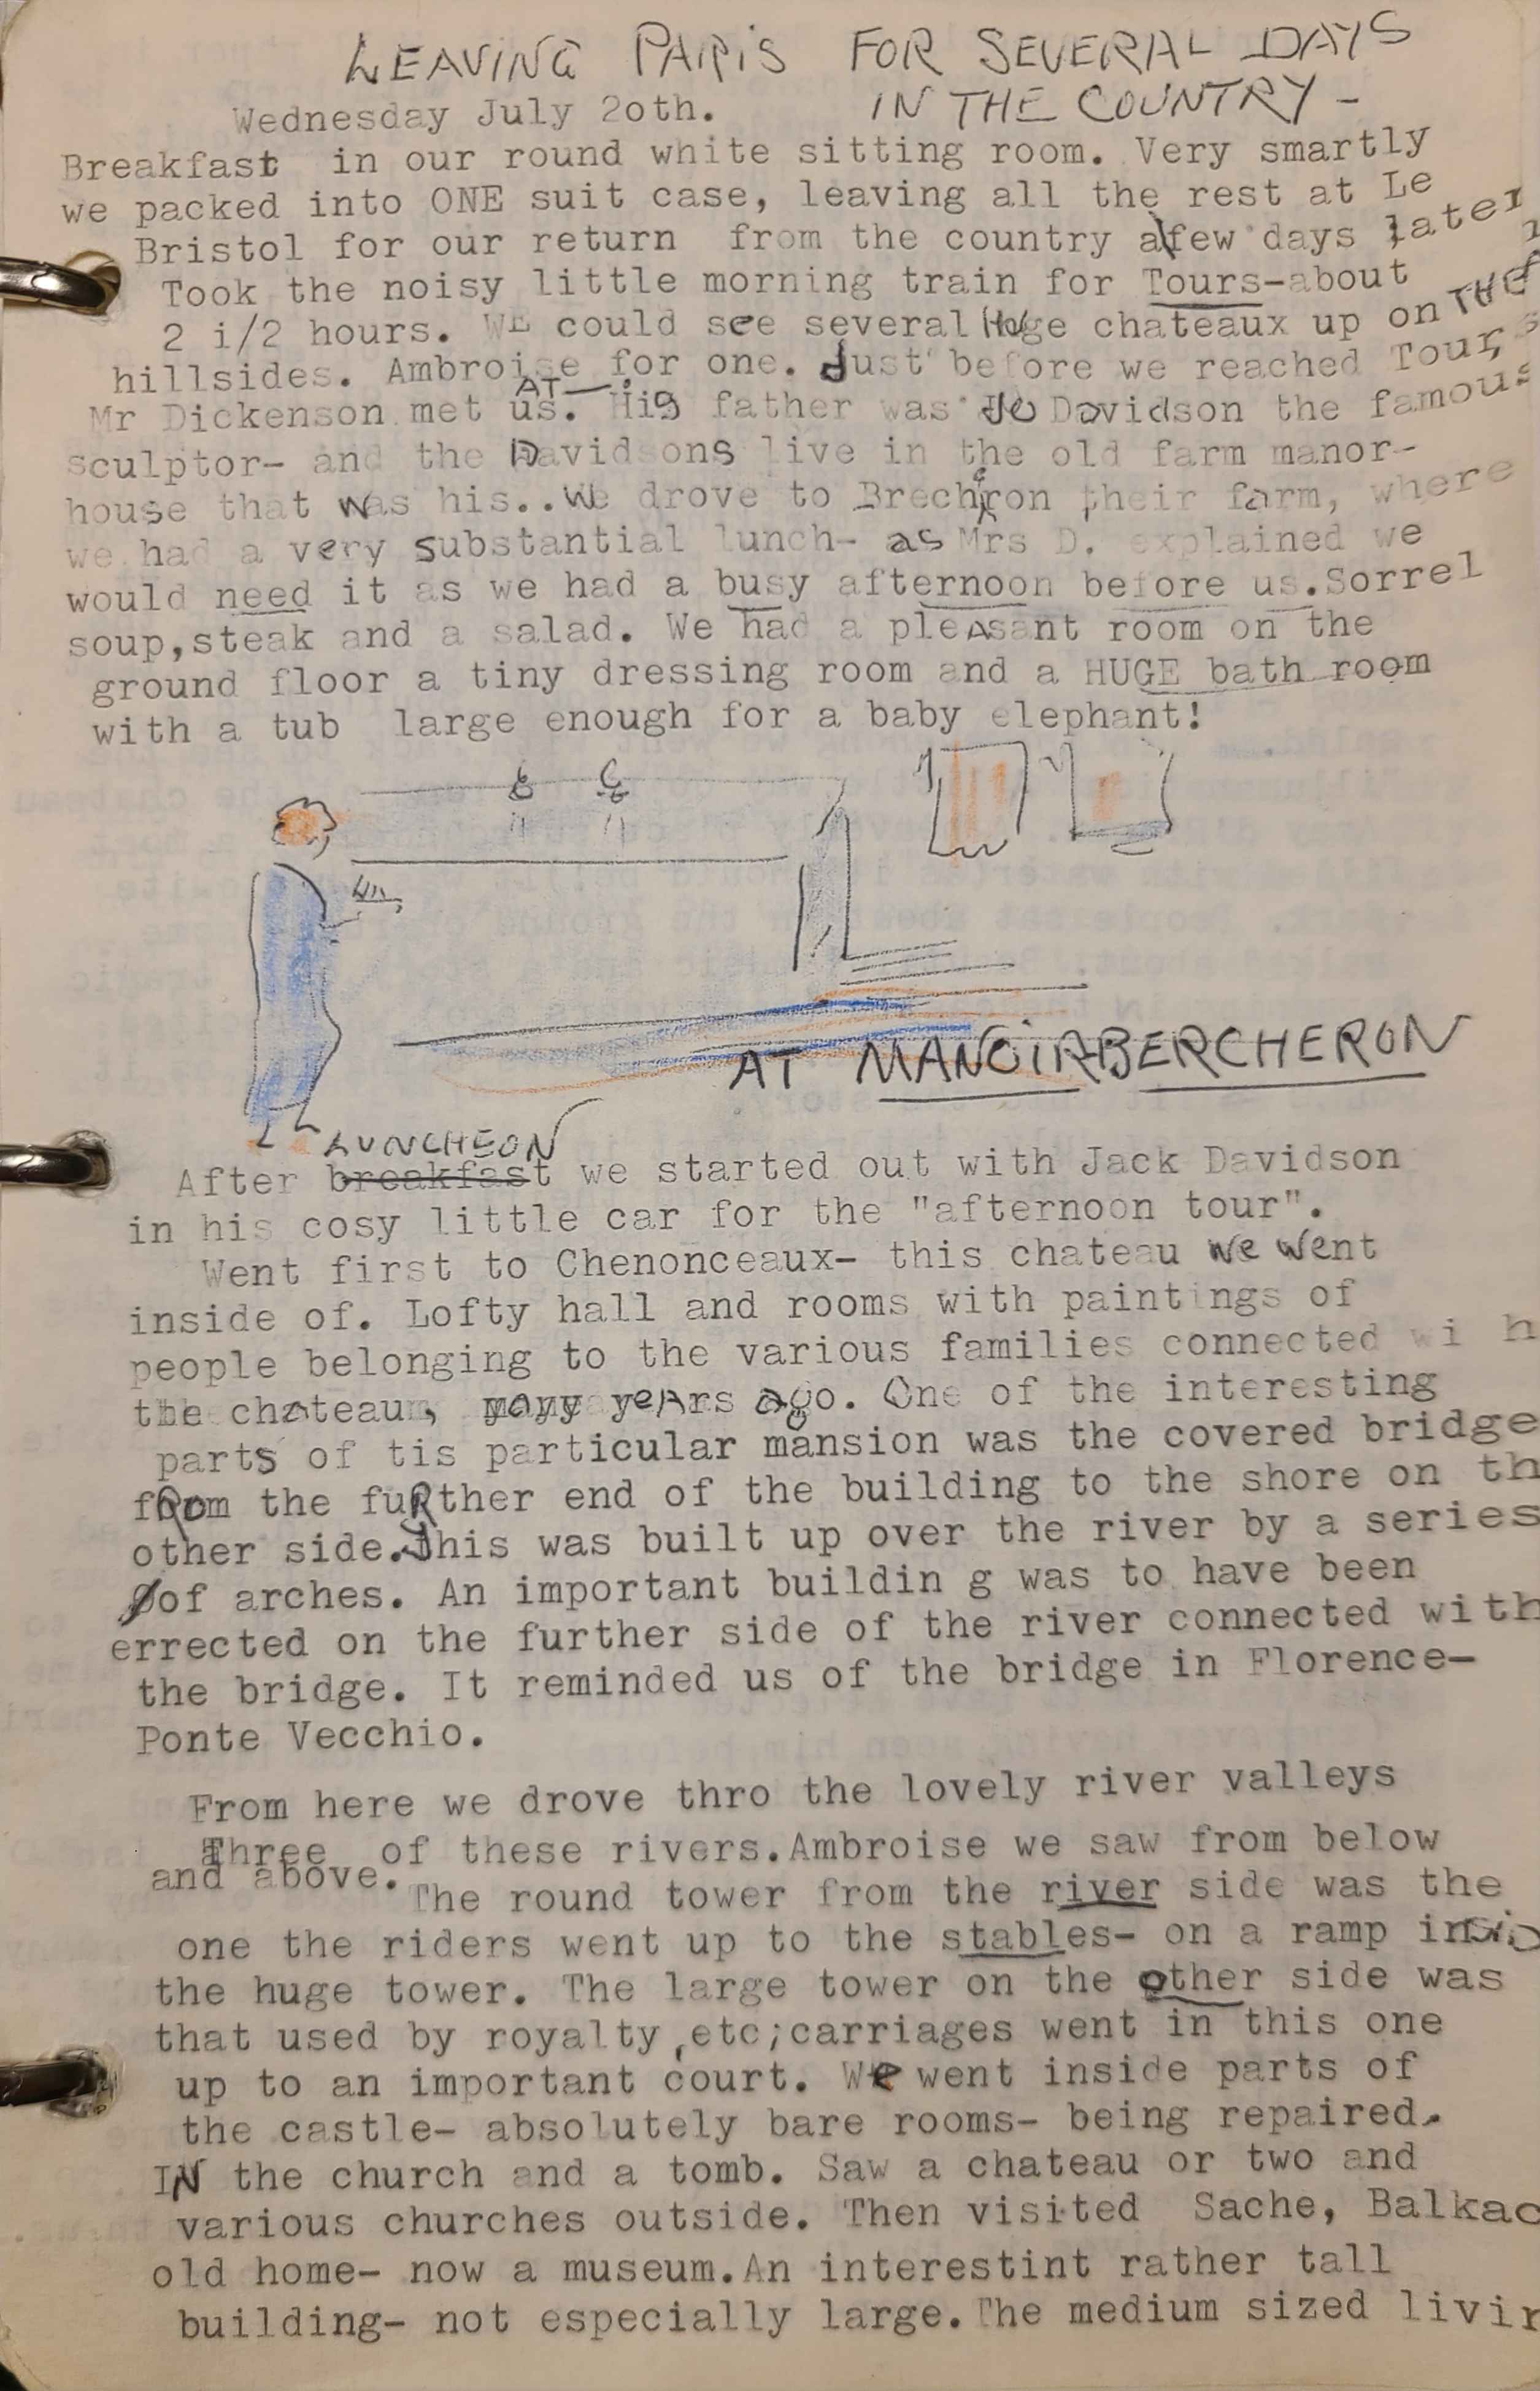 LEAVING PARIS FOR SEVERAL DAYS
IN THE COUNTRY -
Wednesday July 2oth.
Breakfast in our round white sitting room. Very smartly
we packed into ONE suit case, leaving all the rest at Le
Bristol for our return from the country a few days later
Took the noisy little morning train for Tours-about
2 i/2 hours. WE could see several Huge chateaux up on THE
hillsides. Ambroise for one. Just before we reached Tours
Mr Dickenson met us. His father was Jo Davidson the famous
AT
sculptor- and the Davidsons live in the old farm manor-
house that was his..We drove to Brecheron their farm, where
we had a very substantial lunch- as Mrs D. explained we
would need it as we had a busy afternoon before us.Sorrel
soup,steak and a salad. We had a pleasant room on the
ground floor a tiny dressing room and a HUGE bath room
with a tub large enough for a baby elephant!
AT MANOIR BERCHERON
LUNCHEON
After breakfast we started out with Jack Davidson
in his cosy little car for the "afternoon tour".
Went first to Chenonceaux- this chateau we went
inside of. Lofty hall and rooms with paintings of
people belonging to the various families connected wi h
the chateau, many years ago. One of the interesting
parts of tis particular mansion was the covered bridge
from the fuRther end of the building to the shore on th
other side.This was built up over the river by a series
of arches. An important buildin g was to have been
errected on the further side of the river connected with
the bridge. It reminded us of the bridge in Florence-
Ponte Vecchio.
From here we drove thro the lovely river valleys
Three of these rivers.Ambroise we saw from below
and above.
The round tower from the river side was the
one the riders went up to the stables- on a ramp insid
the huge tower. The large tower on the other side was
that used by royalty,etc;carriages went in this one
up to an important court. We went inside parts of
the castle- absolutely bare rooms- being repaired.
IN the church and a tomb. Saw a chateau or two and
various churches outside. Then visited Sache, Balkac
old home- now a museum.An interestint rather tall
building- not especially large.The medium sized livin